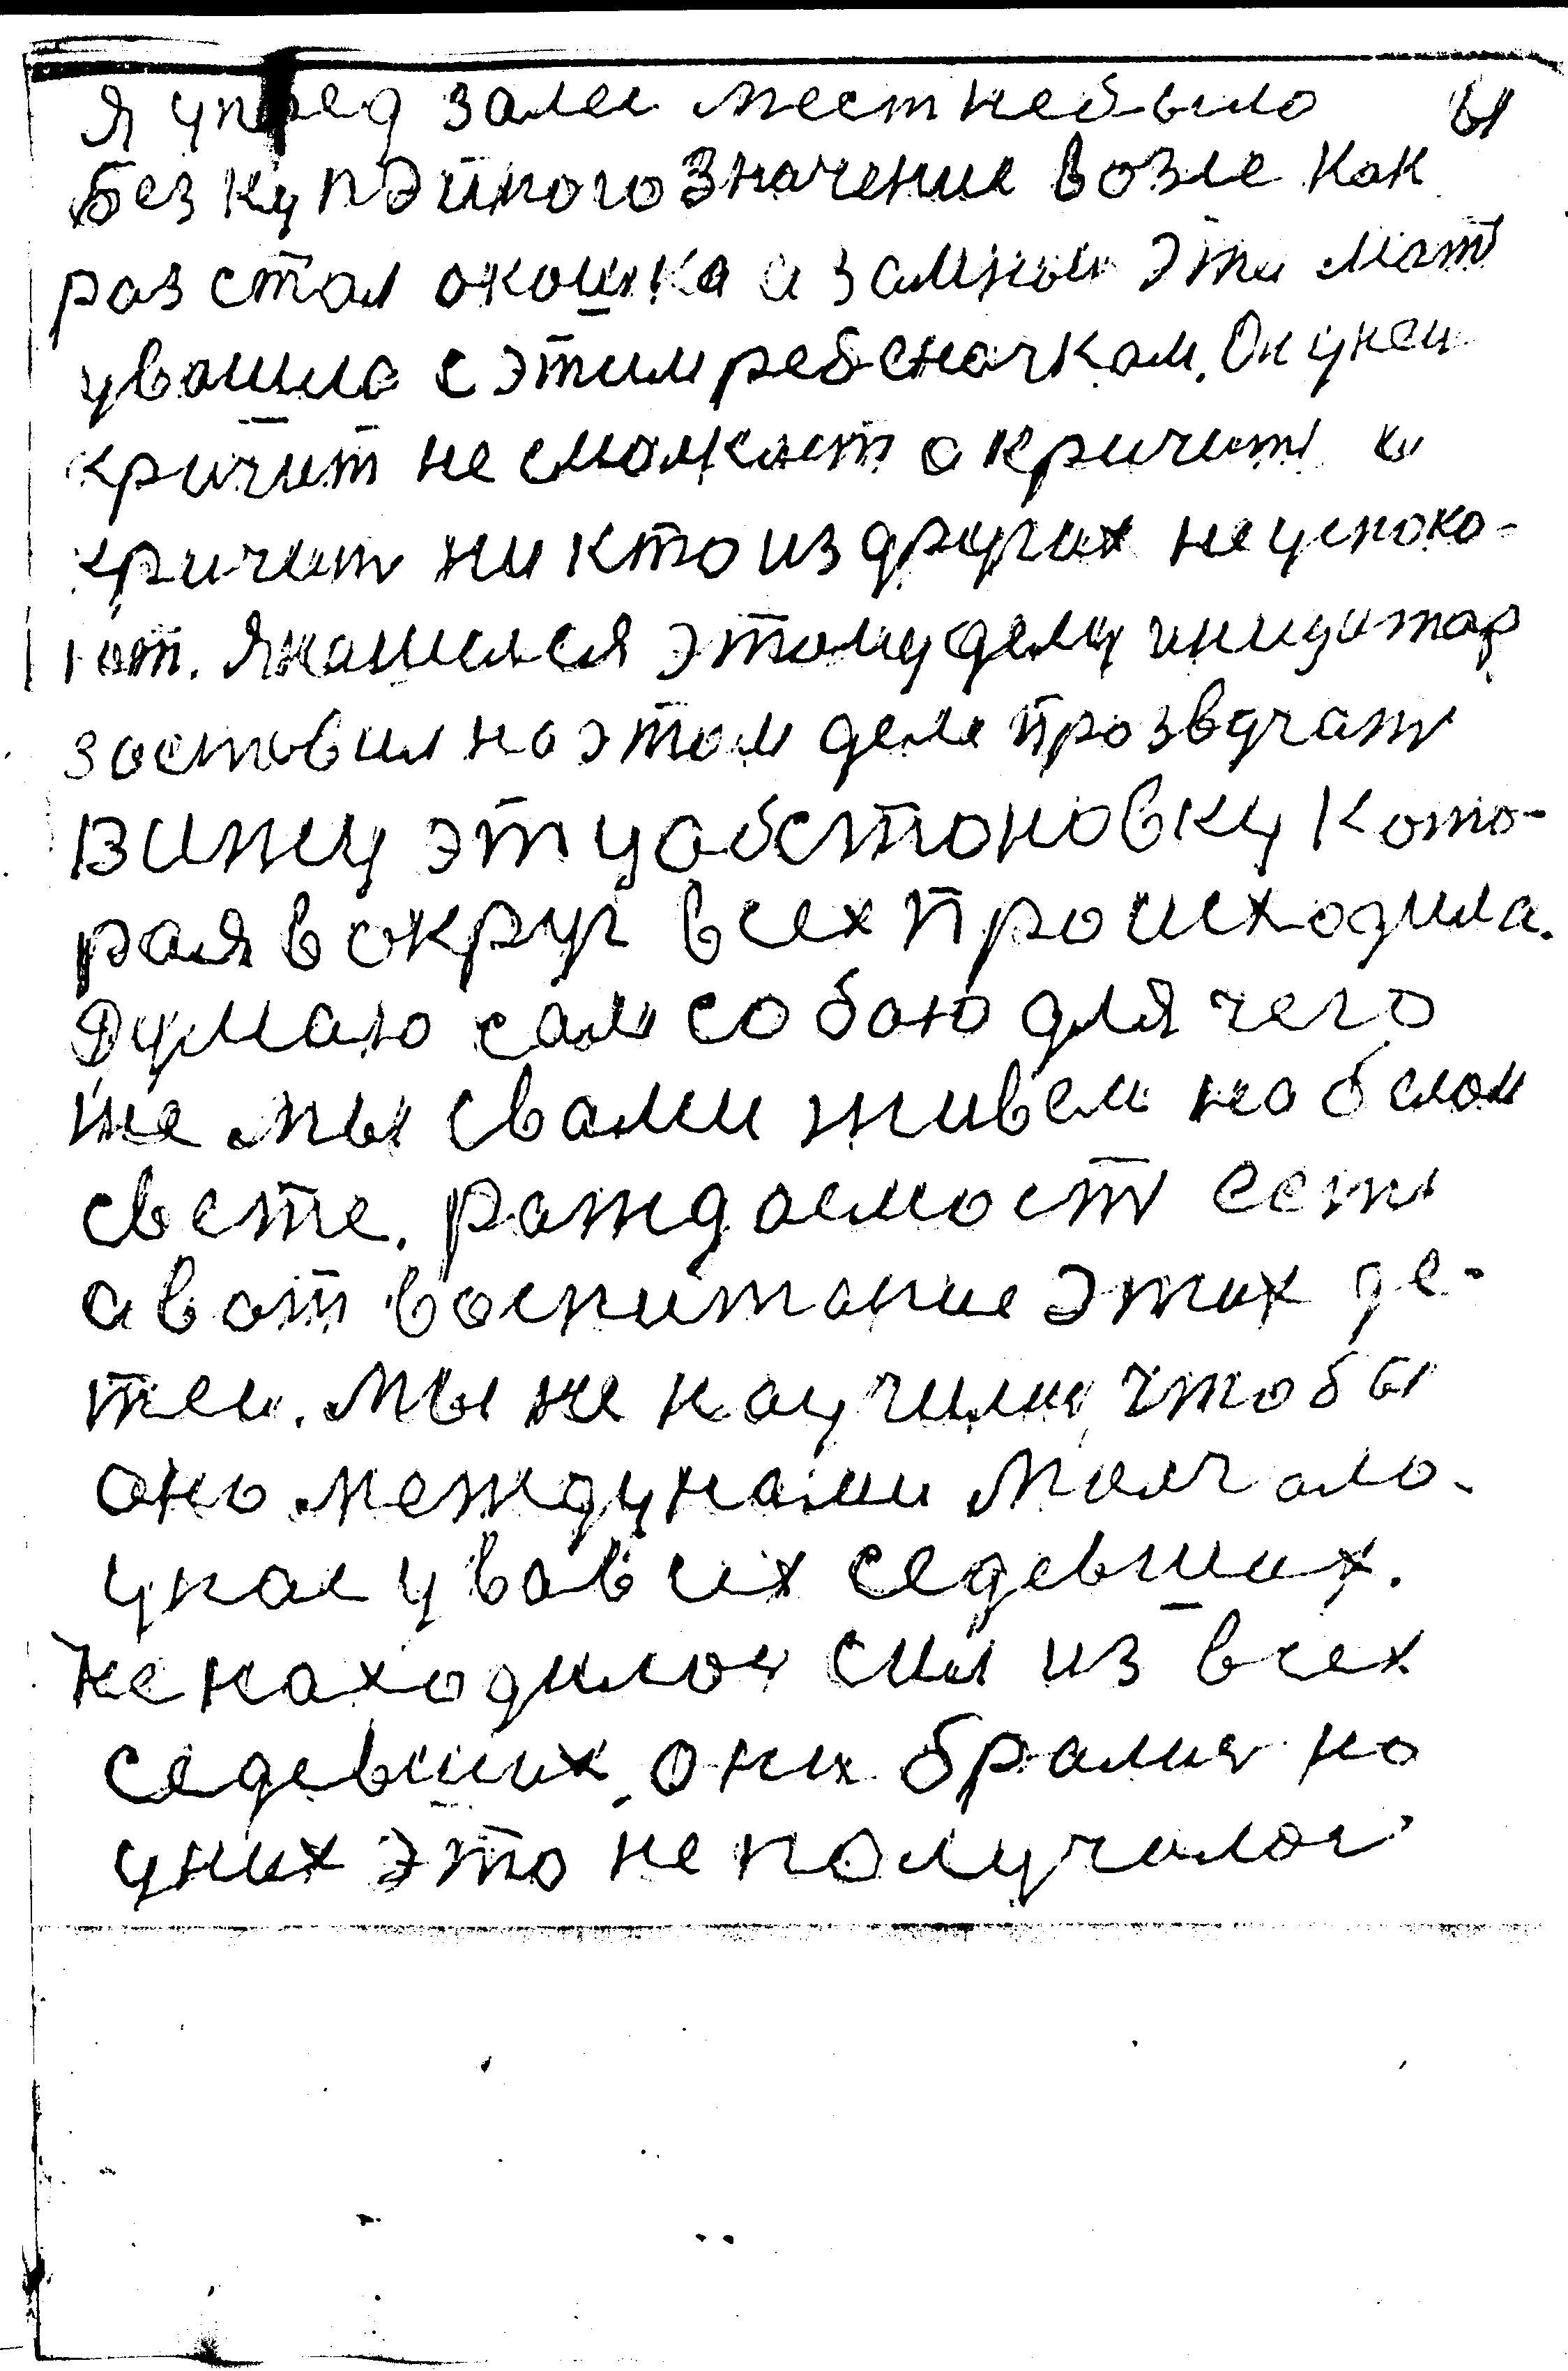 Я упред зале мест небыло ы
без купэйного значение возле как
раз стал окошка а замной эта мат
увашла с этим ребеначкам. Он уней
кричит не смолкает а кричит и
кричит ни кто из других не успоко-
ют. Я нашелся этому делу инициатар
заставил на этом деле прозвучат
вижу эту абстоновку кото-
рая вокруг всех происходила.
Думаю сам собою для чего
же мы свами живем на белом
свете. Рождаемост есть
а вот воспитание этих де-
тей. Мы не научили, чтобы
оно междунами молчало.
унас увавсих седевших.
Не находилос сил из всех
седевших, они брались но
уних это не получалос